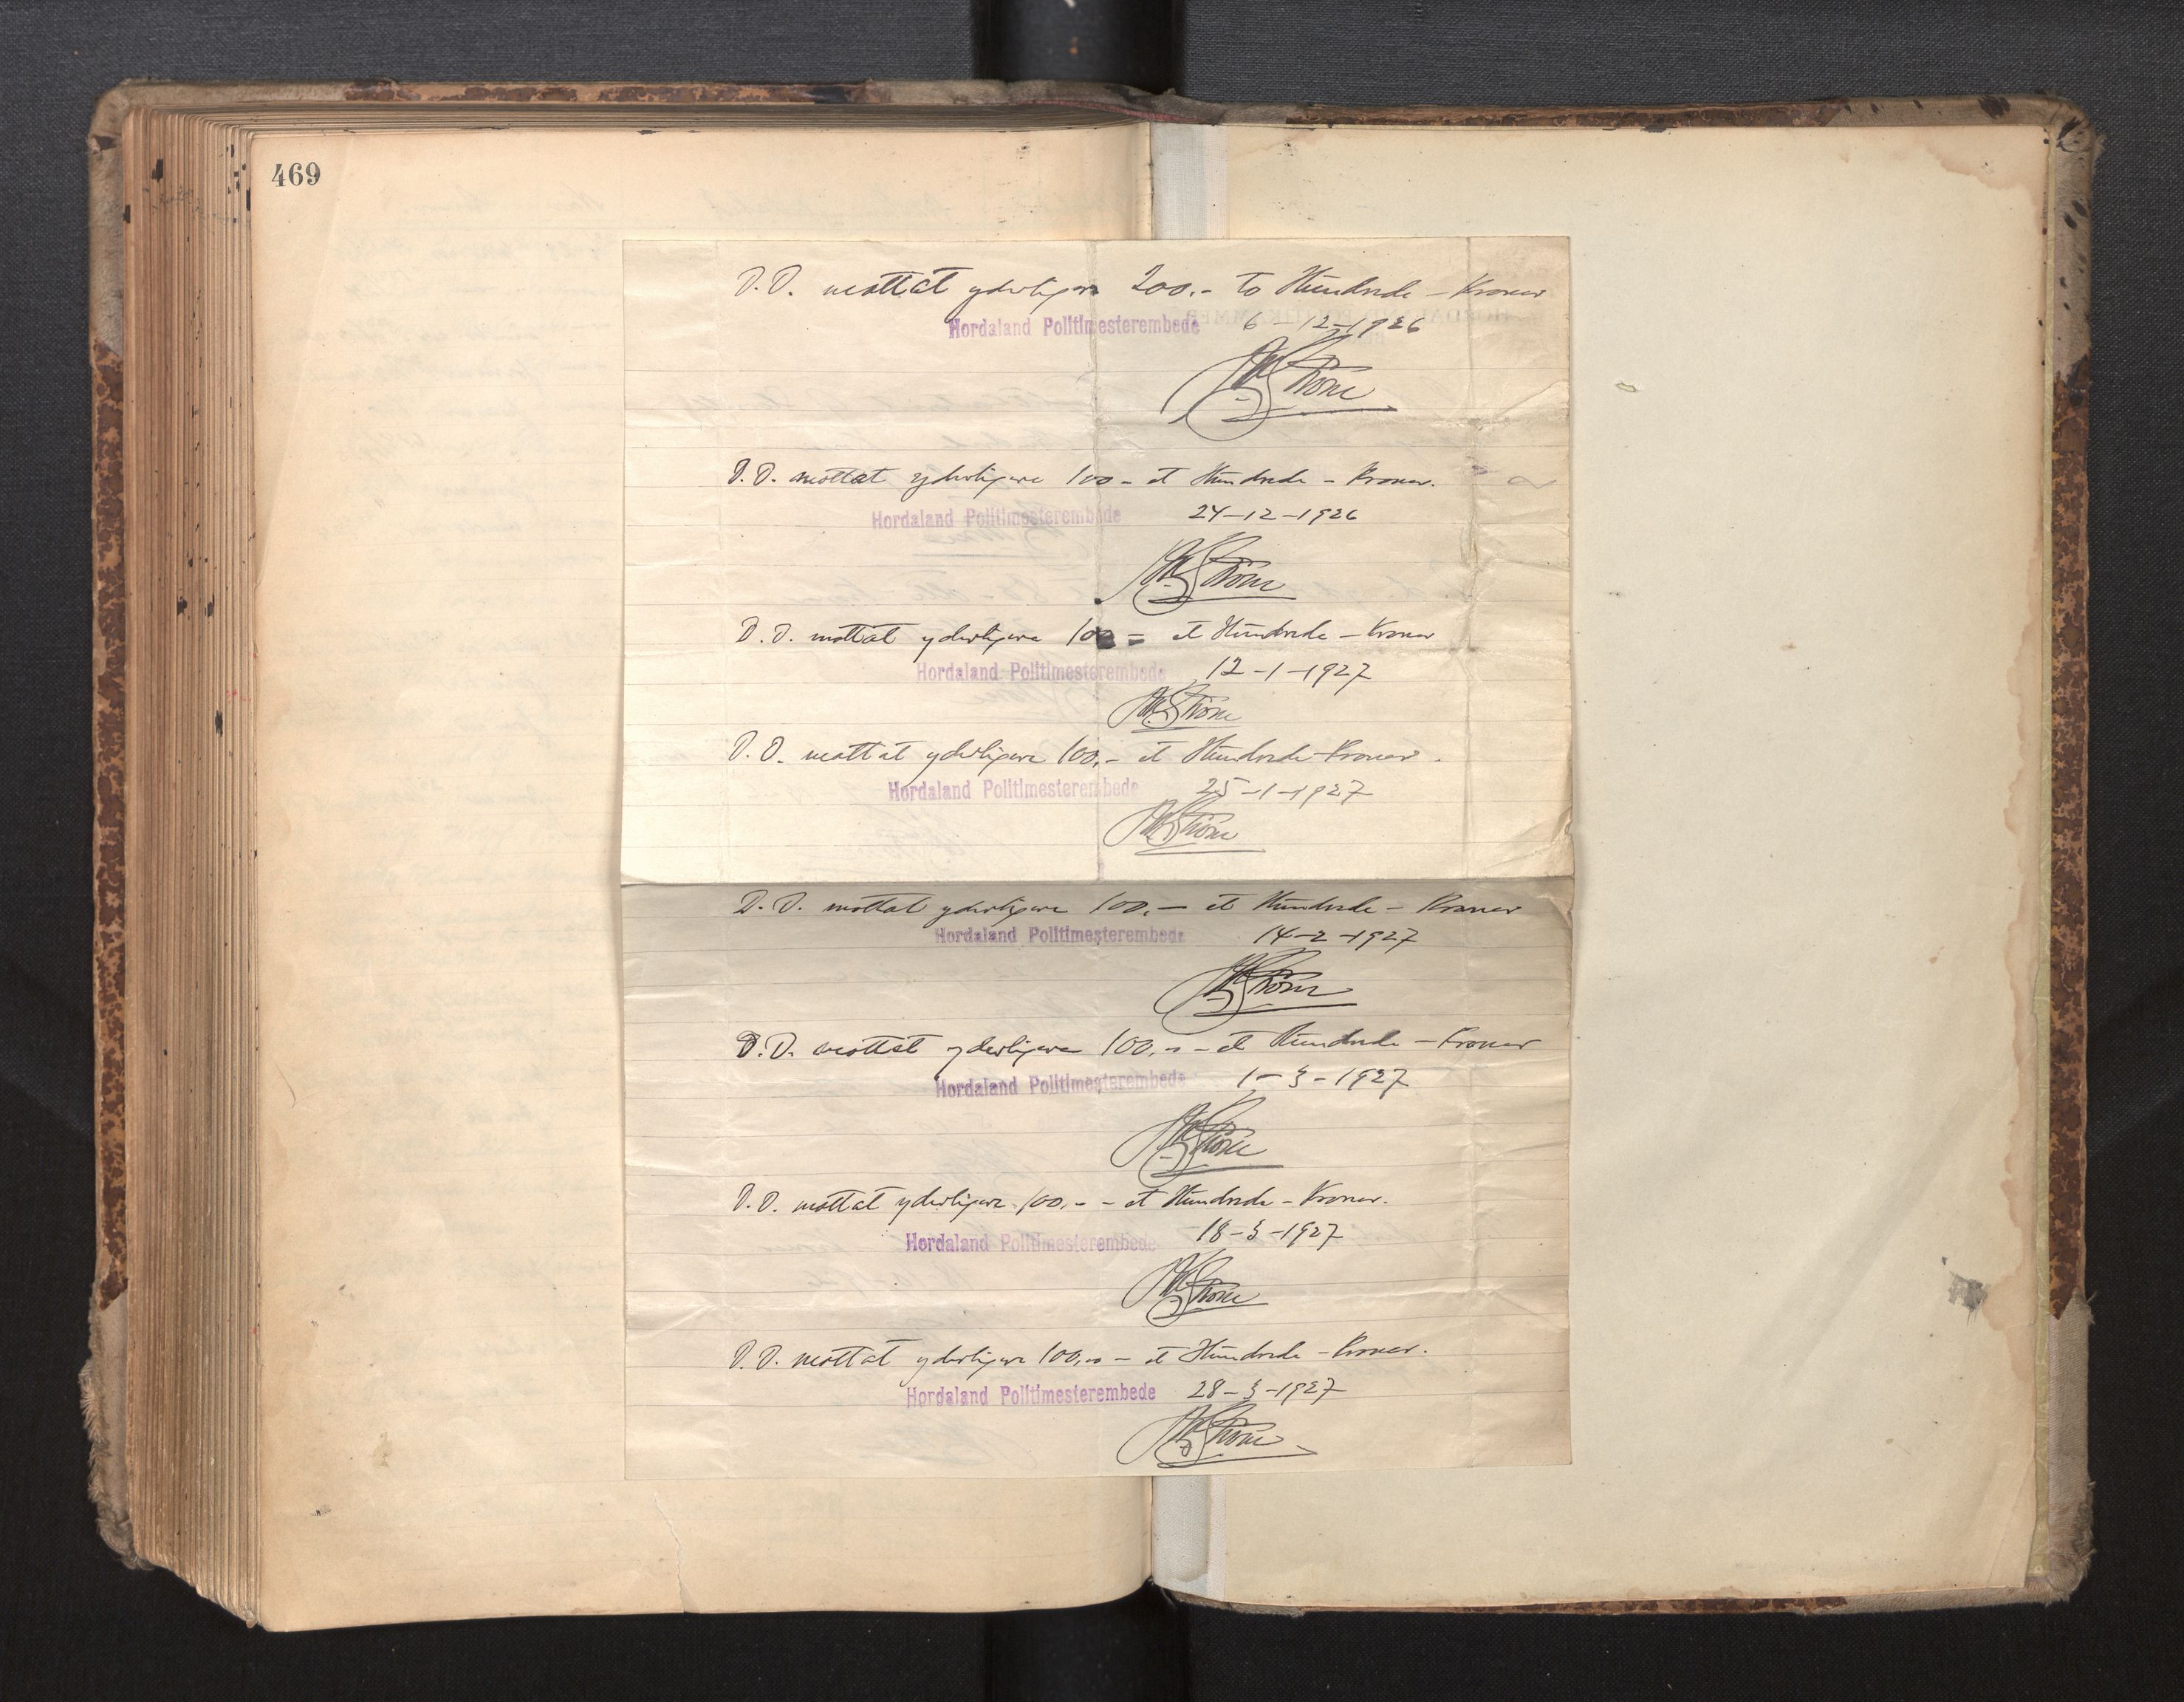 469
D.D. mottat yderligere 200.- to Hundrede - Kroner
Hordaland Politimesterembede 6-12-1926
D.D. mottat yderligere 100 - et Hundrede - Kroner.
Hordaland Politimesterembede 24-12-1926
D.D. mottat yderligere 100 - et Hundrede - Kroner
Hordaland Politimesterembede 12-1-1927
D.D. mottat yderligere 100,- et Hundrede - Kroner.
Hordaland Politimesterembede 25-1-1927
D.D. mottat yderligere 100,- et Hundrede - Kroner
Hordaland Politimesterembede 14-2-1927
D.D. mottat yderligere 100,- - et Hundrede - Kroner
Hordaland Politimesterembede 1-3-1927
D.D. mottat yderligere 100,- - et Hundrede - Kroner.
Hordaland Politimesterembede 18-3-1927
D.D. mottat yderligere 100,00 - et Hundrede - Kroner.
Hordaland Politimesterembede 28-3-1927